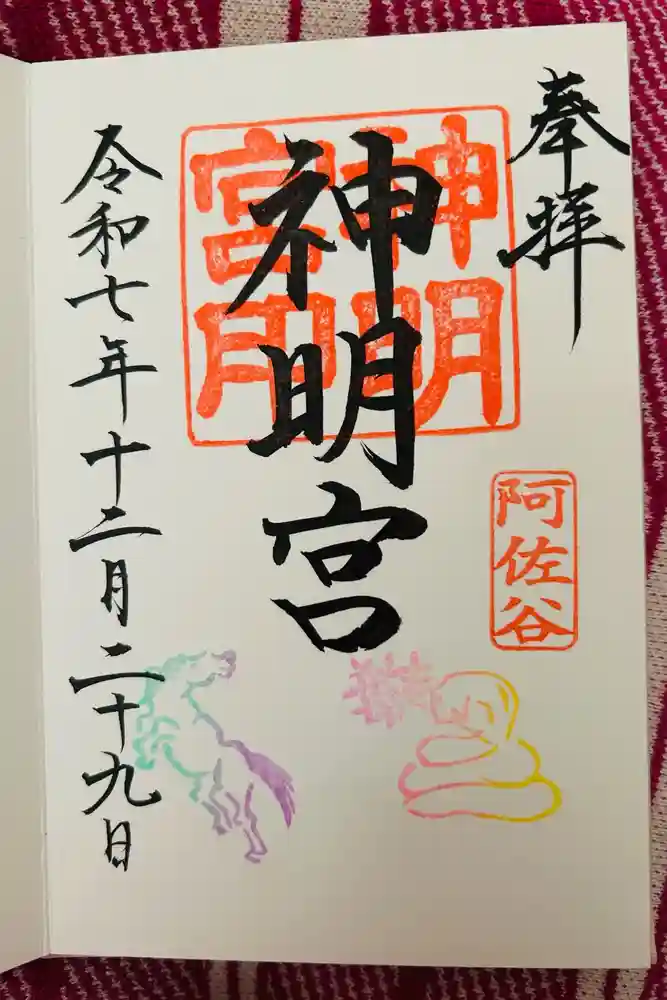 奉拝
神明宮
神明
宮印
阿佐谷
令和七年十二月二十九日